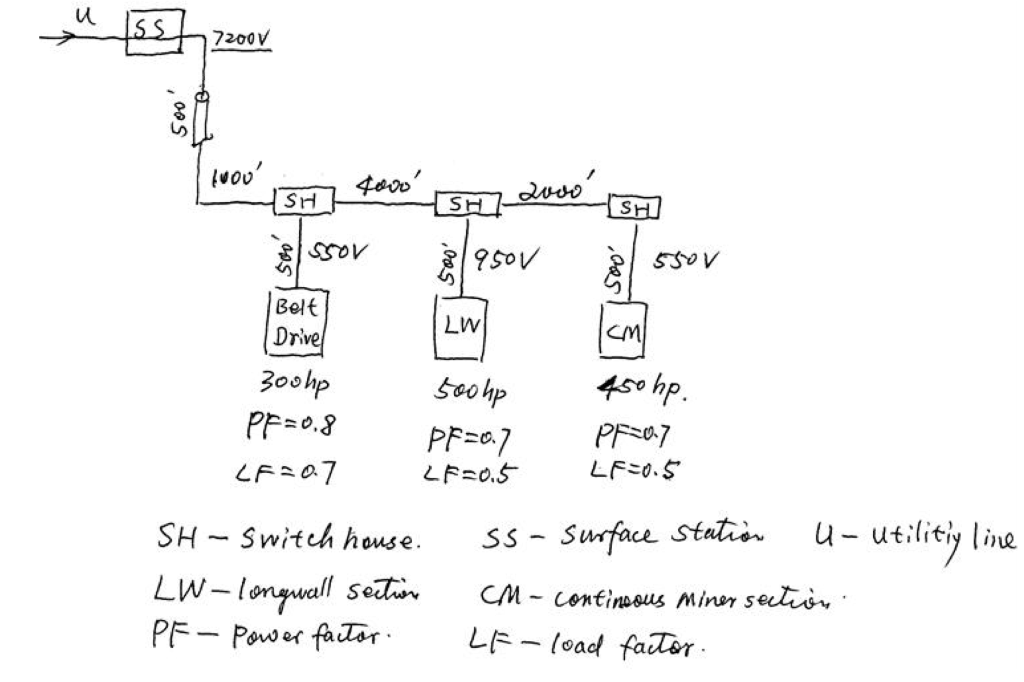 U
SS
7200V
500'
1000'
4000'
2000'
SH
SH
SH
500'
550V
500'
950V
500'
550V
Belt
Drive
LW
CM
300hp
500hp
450hp.
PF=0.8
PF=0.7
PF=0.7
LF=0.7
LF=0.5
LF=0.5
SH – Switch house. SS – Surface Station U – utilitiy line
LW – longwall section CM – continoous miner section.
PF – Power factor. LF – load factor.